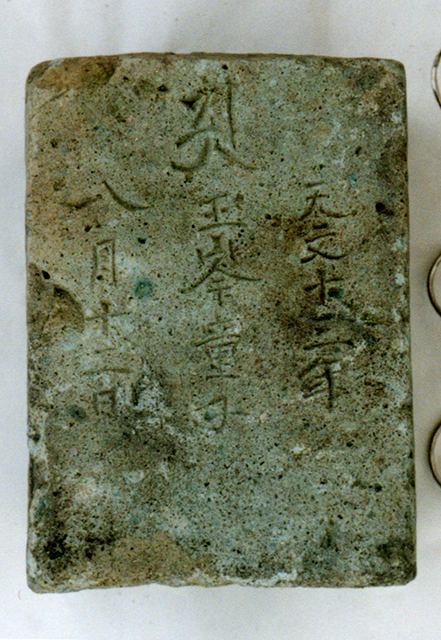 天文十二年
玉岑童子
八月十二日